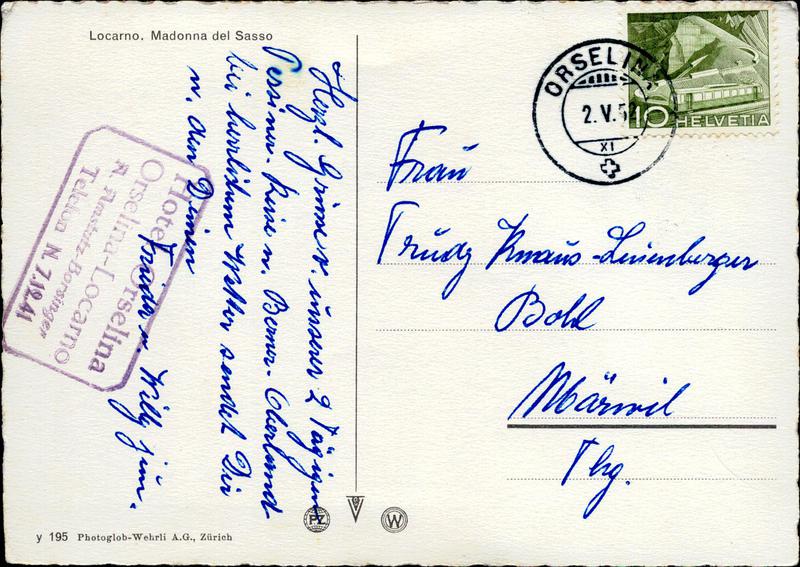 Locarno. Madonna del Sasso
Herzl. Grüsse v. unserer 2 Tägigen
Tessiner-Reise u. Berner-Oberland
bei herrlichem Wetter sendet Dir
u. den Deinen
Frieda u. Willy jun.
Hotel Orselina
Orselina-Locarno
Telefon N. 7.12.41
ORSELINA
2.V.5
XI
10
HELVETIA
Frau
Trudy Knaus-Leuenberger
Bohl
Märwil
Thg.
PZ
W
y 195 Photoglob-Wehrli A.G., Zürich